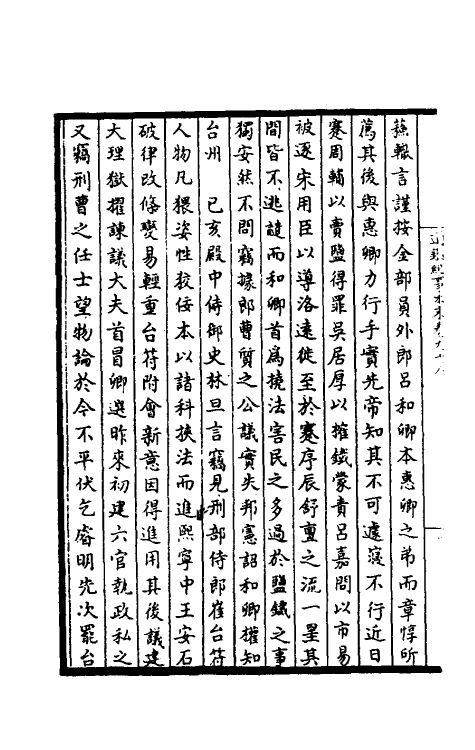 蘇轍言謹按金部員外郎呂和卿本惠卿之弟而章惇所
薦其後與惠卿力行手實先帝知其不可遽寢不行近日
蹇周輔以賣鹽得罪吳居厚以榷鐵蒙責呂嘉問以市易
被逐宋用臣以導洛遠徙至於蹇序辰舒亶之流一罣其
間皆不逃譴而和卿首爲撓法害民之多過於鹽鐵之事
獨安然不問竊據郎曹質之公議實失邦憲詔和卿權知
台州 已亥殿中侍御史林旦言竊見刑部侍郎崔台符
人物凡猥姿性狡佞本以諸科挾法而進熙寧中王安石
破律改條變易輕重台符附會新意因得進用其後議建
大理獄擢諫議大夫首冒卿選昨來初建六官執政私之
又竊刑曹之任士望物論於今不平伏乞睿明先次罷台